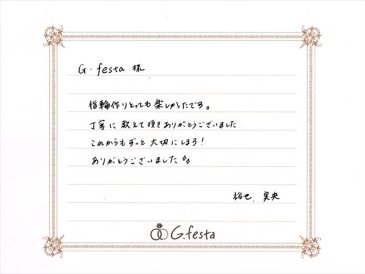 G.festa 様
指輪作りとっても楽しかったです。
丁寧に教えて頂きありがとうございました
これからもずっと大切にしよう!
ありがとうございました。
実央
G.festa